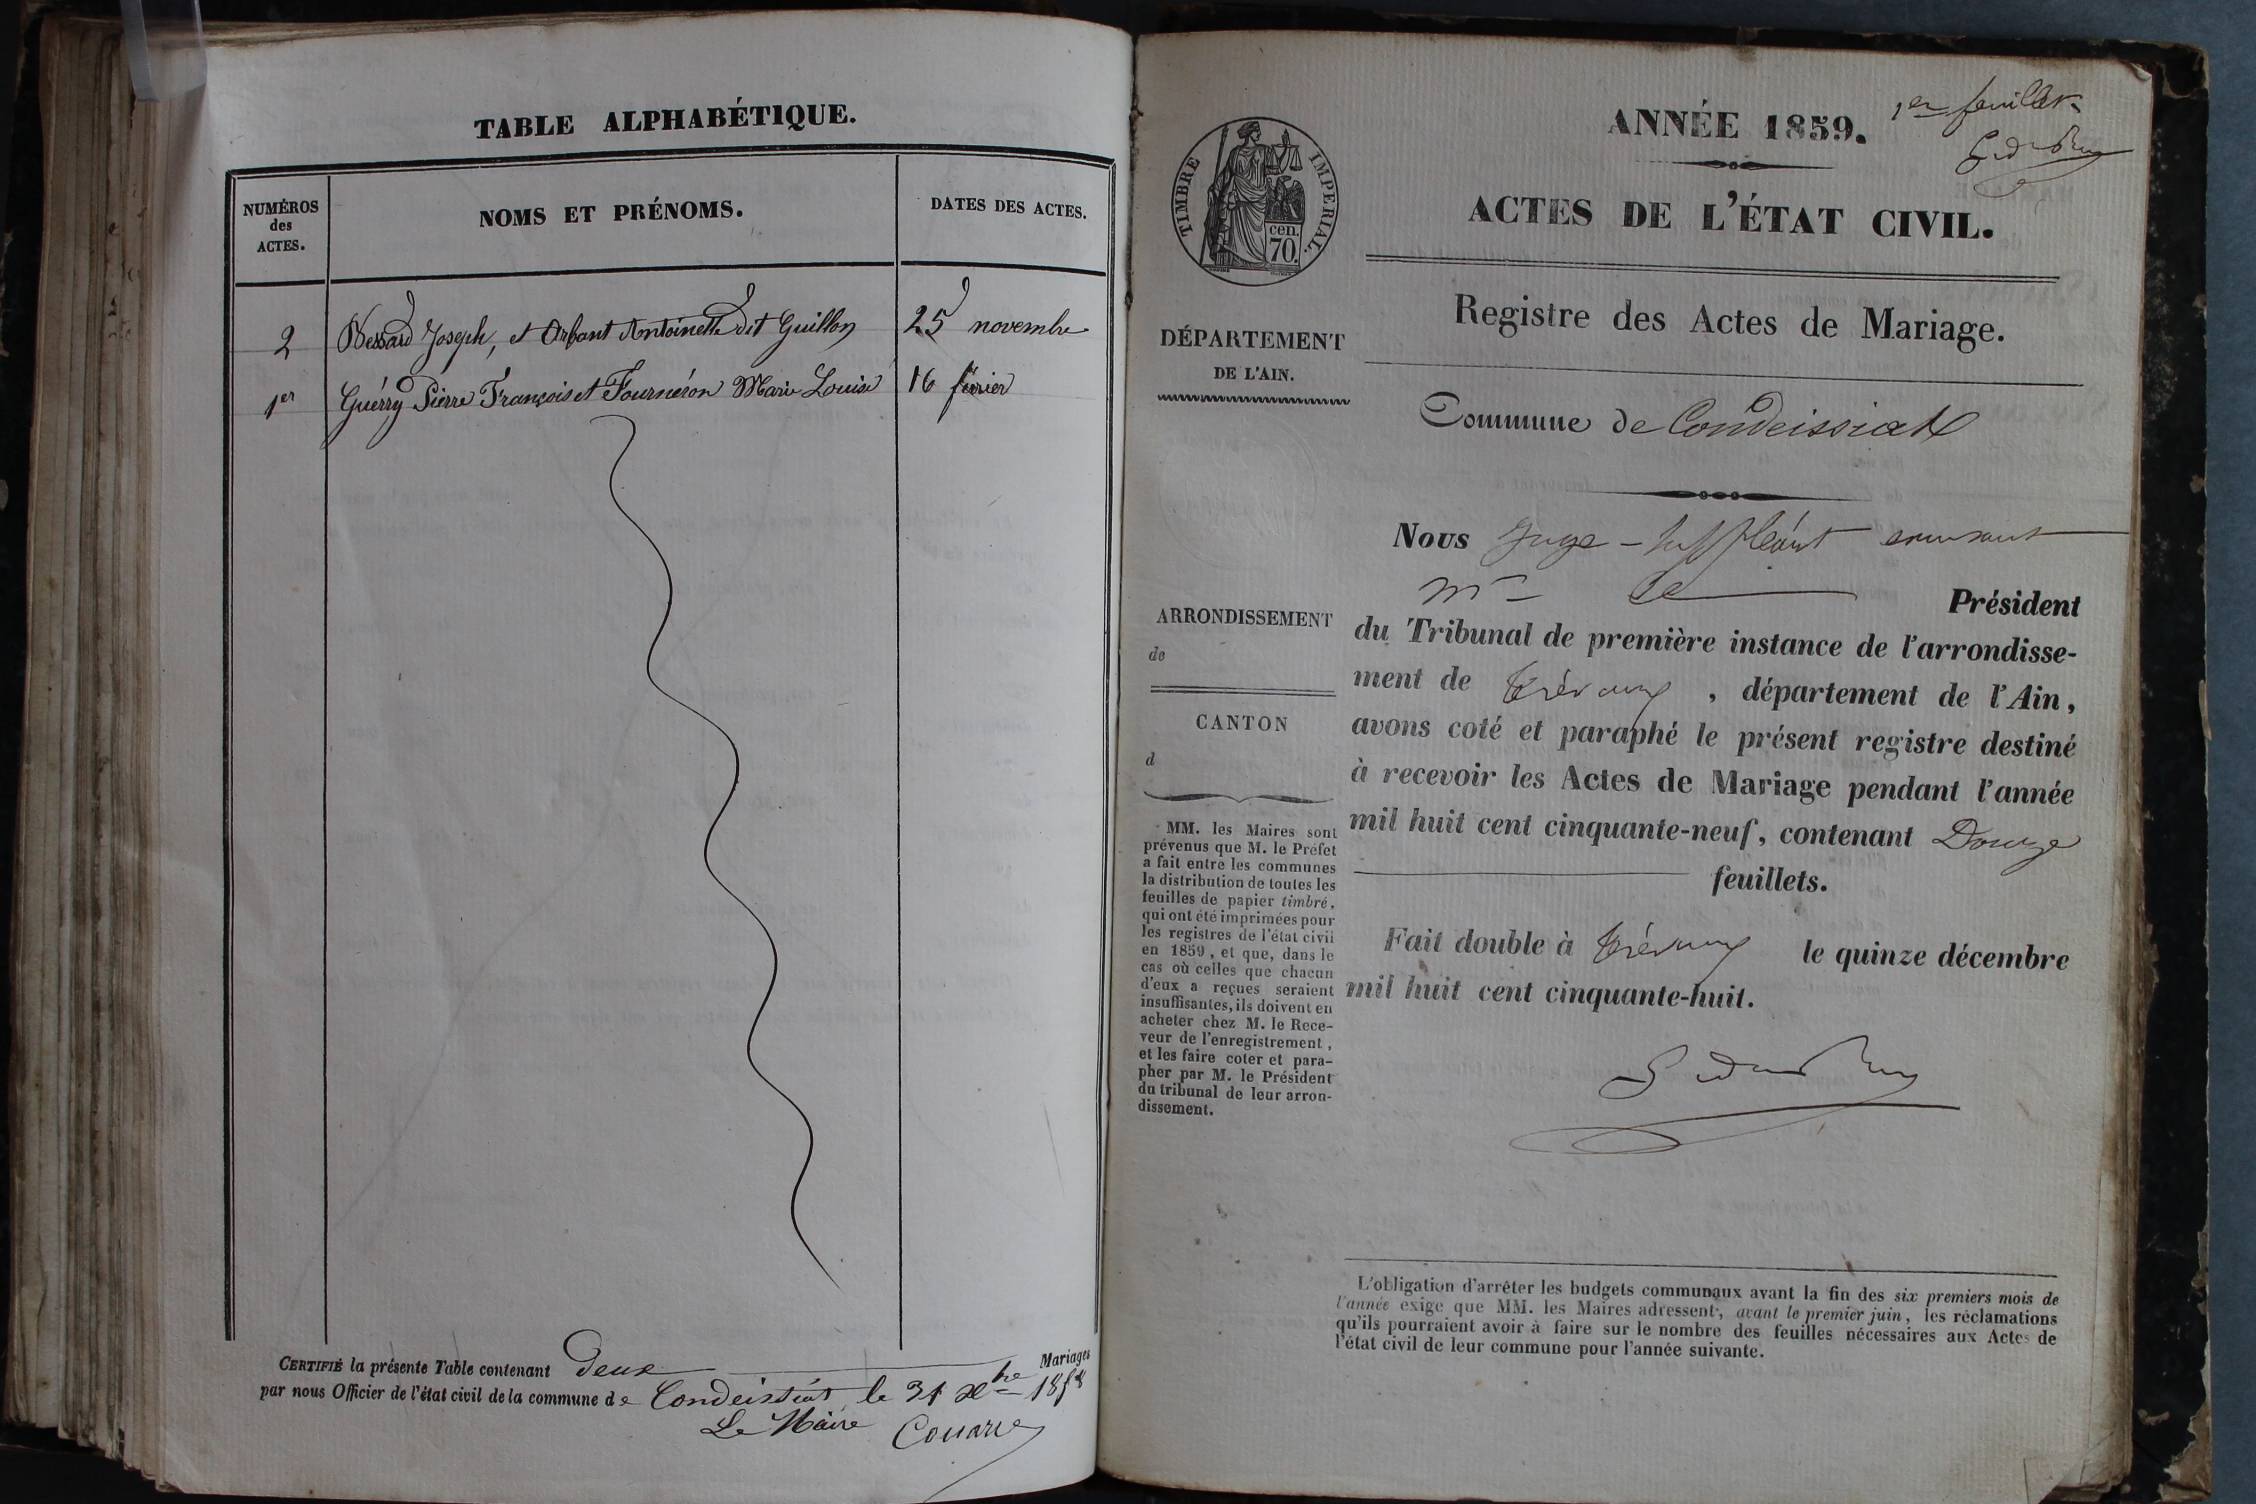 TABLE ALPHABÉTIQUE.
NUMÉROS
des
ACTES.
NOMS ET PRÉNOMS.
DATES DES ACTES.
2
Bessard Joseph, et Arbant Antoinette dit Guillon
25 novembre
1er
Guérry Pierre François et Fournéron Marie Louise
16 février
CERTIFIÉ la présente Table contenant deux Mariages
par nous Officier de l'état civil de la commune de Condeissiat, le 31 Xbre 1858
Le Maire
1er feuillet
ANNÉE 1859.
ACTES DE L'ÉTAT CIVIL.
TIMBRE IMPERIAL.
cen.
70.
Registre des Actes de Mariage.
DÉPARTEMENT
DE L'AIN.
Commune de Condeissiat
Nous Juge-suppléant
Président
du Tribunal de première instance de l'arrondisse-
ment de Trévoux, département de l'Ain,
avons coté et paraphé le présent registre destiné
à recevoir les Actes de Mariage pendant l'année
mil huit cent cinquante-neuf, contenant Douze
feuillets.
Fait double à Trévoux le quinze décembre
mil huit cent cinquante-huit.
ARRONDISSEMENT
de
CANTON
d
MM. les Maires sont
prévenus que M. le Préfet
a fait entre les communes
la distribution de toutes les
feuilles de papier timbré,
qui ont été imprimées pour
les registres de l'état civil
en 1859, et que, dans le
cas où celles que chacun
d'eux a reçues seraient
insuffisantes, ils doivent en
acheter chez M. le Rece-
veur de l'enregistrement,
et les faire coter et para-
pher par M. le Président
du tribunal de leur arron-
dissement.
L'obligation d'arrêter les budgets communaux avant la fin des six premiers mois de
l'année exige que MM. les Maires adressent, avant le premier juin, les réclamations
qu'ils pourraient avoir à faire sur le nombre des feuilles nécessaires aux Actes de
l'état civil de leur commune pour l'année suivante.